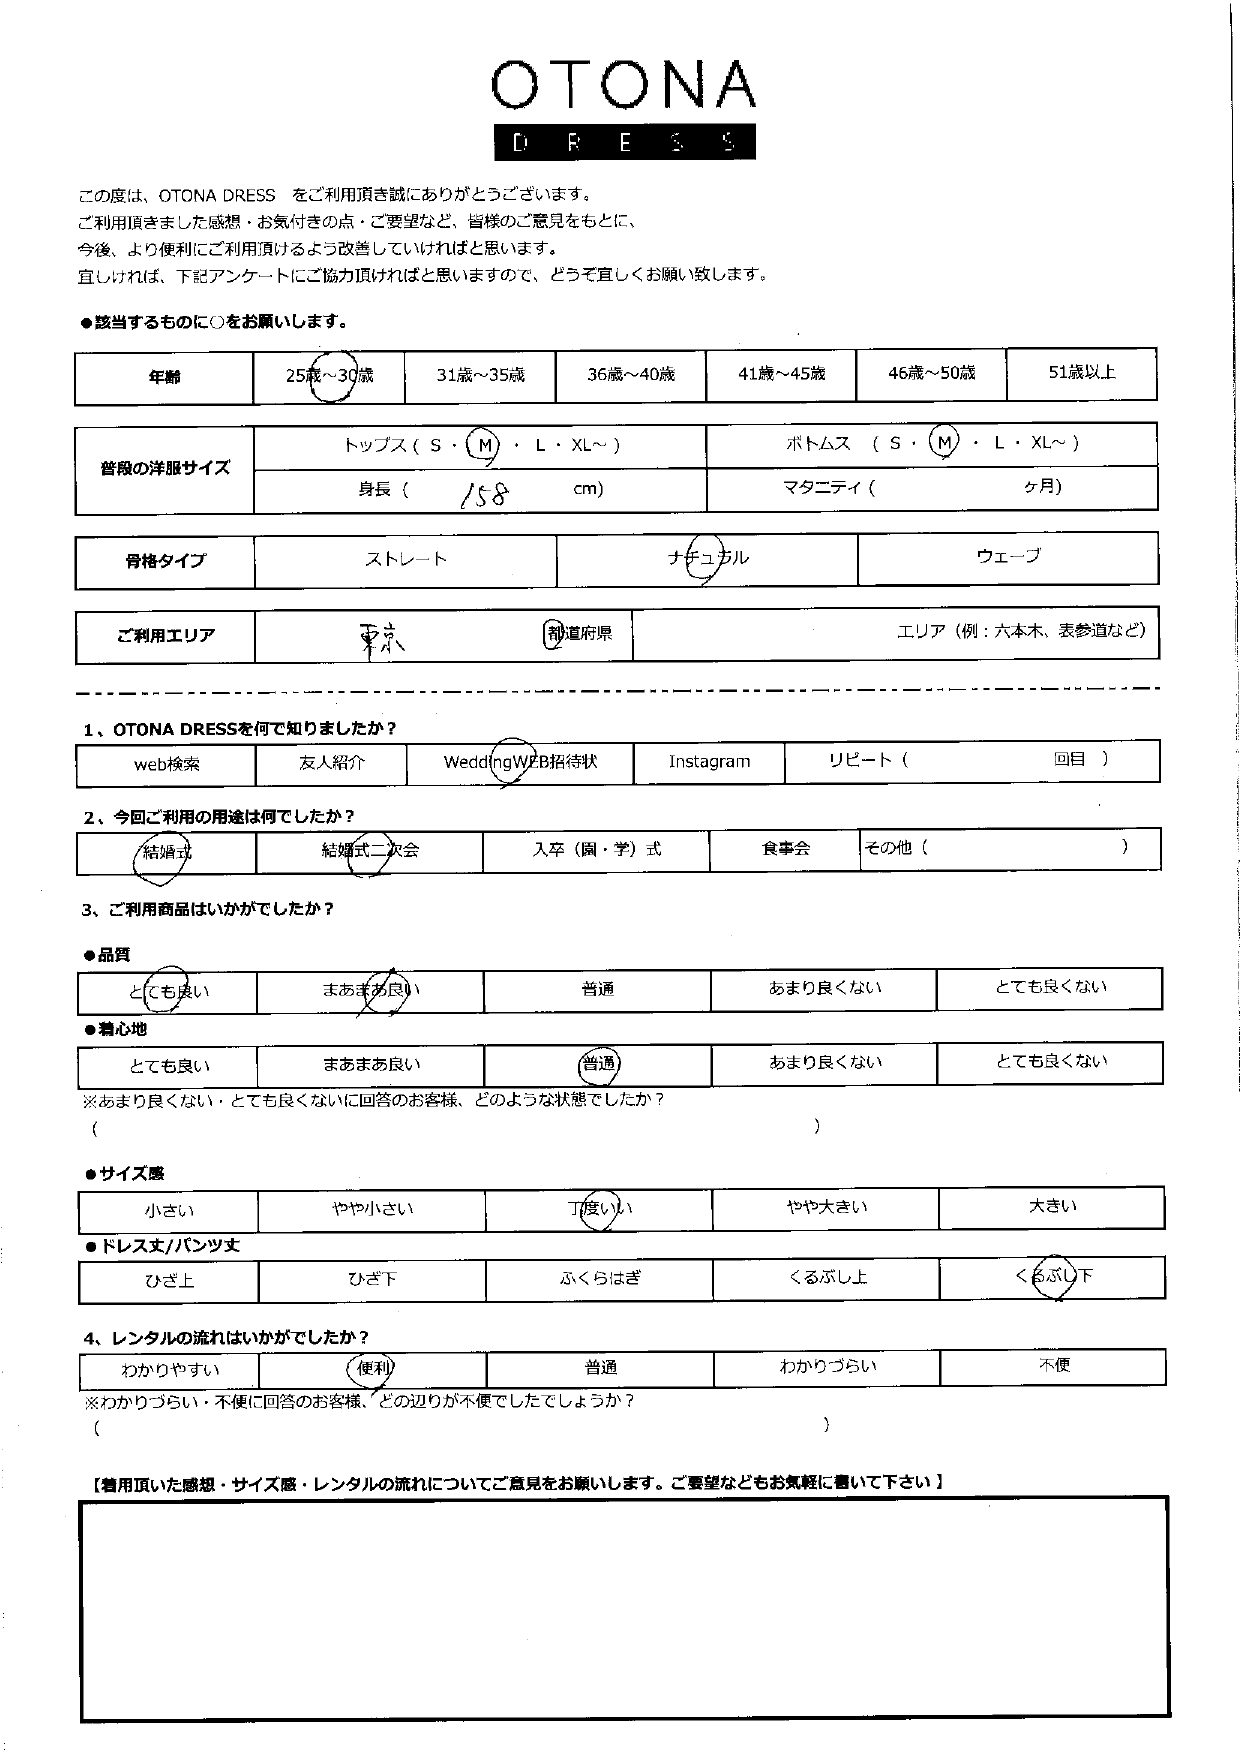 OTONA
DRESS
この度は、OTONA DRESS　をご利用頂き誠にありがとうございます。
ご利用頂きました感想・お気付きの点・ご要望など、皆様のご意見をもとに、
今後、より便利にご利用頂けるよう改善していければと思います。
宜しければ、下記アンケートにご協力頂ければと思いますので、どうぞ宜しくお願い致します。
●該当するものに○をお願いします。
年齢 25歳～30歳 31歳～35歳 36歳～40歳 41歳～45歳 46歳～50歳 51歳以上
普段の洋服サイズ トップス ( S ・ M ・ L ・ XL～ ) ボトムス ( S ・ M ・ L ・ XL～ )
身長 ( 158 cm) マタニティ ( ケ月)
骨格タイプ ストレート ナチュラル ウェーブ
ご利用エリア 東京 都道府県 エリア（例：六本木、表参道など）
1、OTONA DRESSを何で知りましたか？
web検索 友人紹介 WeddingWEB招待状 Instagram リピート ( 回目 )
2、今回ご利用の用途は何でしたか？
結婚式 結婚式二次会 入卒（園・学）式 食事会 その他 ( )
3、ご利用商品はいかがでしたか？
●品質
とても良い まあまあ良い 普通 あまり良くない とても良くない
●着心地
とても良い まあまあ良い 普通 あまり良くない とても良くない
※あまり良くない・とても良くないに回答のお客様、どのような状態でしたか？
( )
●サイズ感
小さい やや小さい 丁度いい やや大きい 大きい
●ドレス丈/パンツ丈
ひざ上 ひざ下 ふくらはぎ くるぶし上 くるぶし下
4、レンタルの流れはいかがでしたか？
わかりやすい 便利 普通 わかりづらい 不便
※わかりづらい・不便に回答のお客様、どの辺りが不便でしたでしょうか？
( )
【着用頂いた感想・サイズ感・レンタルの流れについてご意見をお願いします。ご要望などもお気軽に書いて下さい 】